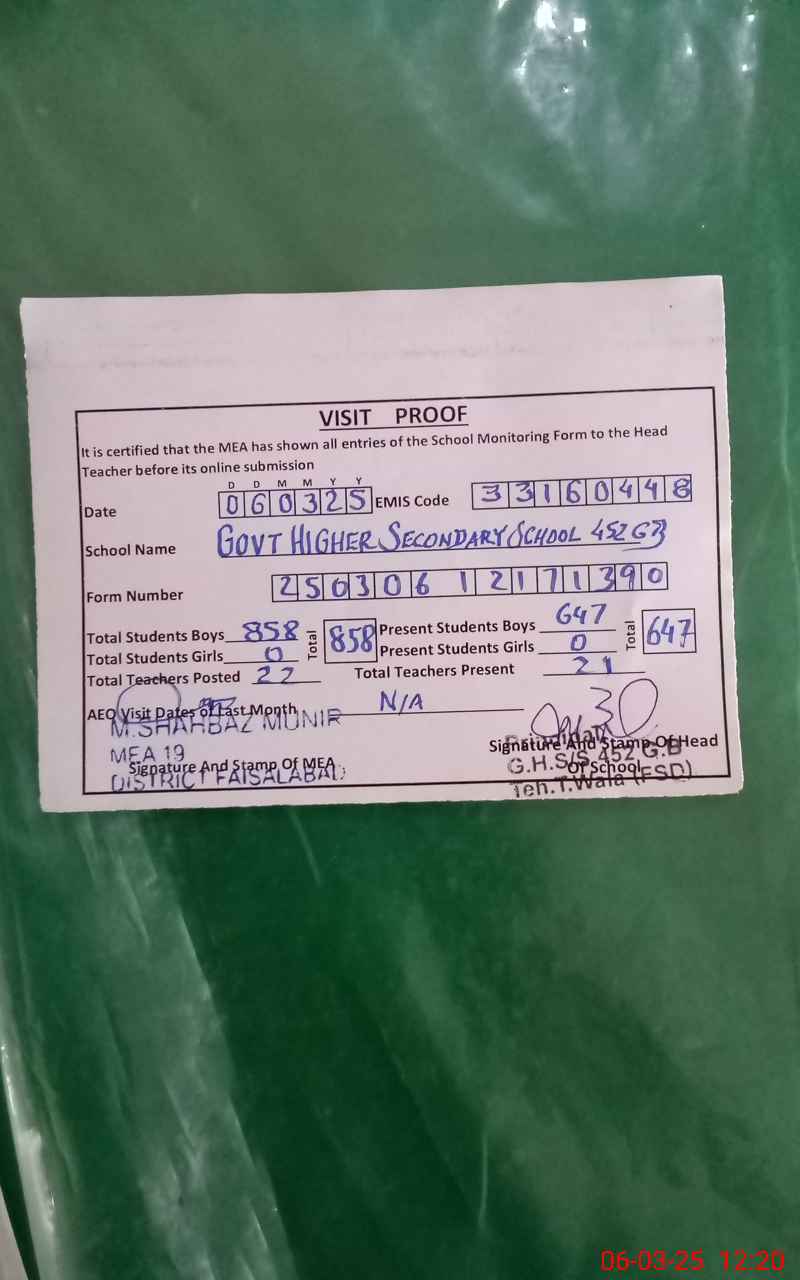 VISIT PROOF
It is certified that the MEA has shown all entries of the School Monitoring Form to the Head
Teacher before its online submission
D D M M Y Y
Date 060325 EMIS Code 33160448
School Name GOVT HIGHER SECONDARY SCHOOL 452 GB
Form Number 250306 12171390
Total Students Boys 858 Total 858 Present Students Boys 647 Total 647
Total Students Girls 0 Present Students Girls 0
Total Teachers Posted 22 Total Teachers Present 21
AEO Visit Dates of Last Month N/A
M.SHAHBAZ MUNIR
MEA 19
DISTRICT FAISALABAD
Signature And Stamp Of MEA
Signature And Stamp Of Head
Of School
G.H.S/S 452 G.B
Teh.T.Wala (FSD)
06-03-25 12:20